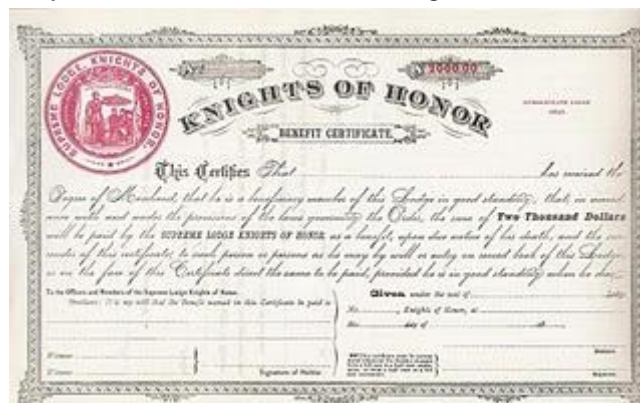 SUPREME LODGE, KNIGHTS OF HONOR.
$2000.00
KNIGHTS OF HONOR
SUBORDINATE LODGE
SEAL.
BENEFIT CERTIFICATE.
This Certifies That has received the
Degree of Manhood, that he is a beneficiary member of this Lodge in good standing, that, in accord-
ance with and under the provisions of the laws governing the Order, the sum of Two Thousand Dollars
will be paid by the SUPREME LODGE KNIGHTS OF HONOR, as a benefit, upon due notice of his death, and the sur-
render of this certificate, to such person or persons as he may by will or entry on record book of this Lodge,
or on the face of this Certificate direct the same to be paid, provided he is in good standing when he dies.
To the Officers and Members of the Supreme Lodge Knights of Honor.
Brothers: It is my will that the Benefit named in this Certificate be paid to
Given under the seal of Lodge
No. , Knights of Honor, at
this day of 18
Witness
Witness
Signature of Member
Reporter